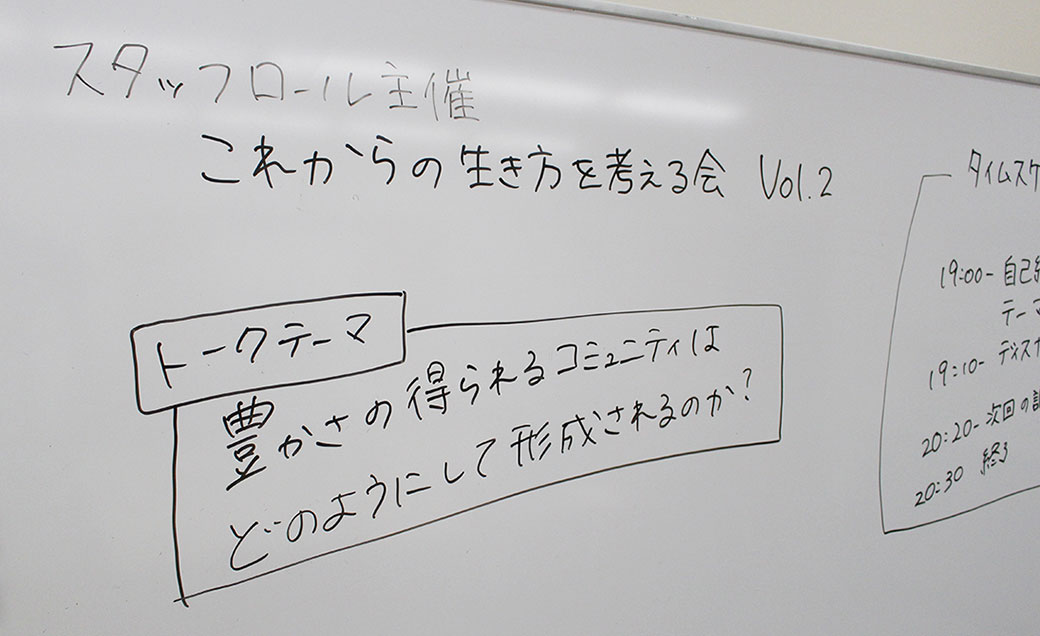 スタッフロール主催
これからの生き方を考える会 Vol.2
トークテーマ
豊かさの得られるコミュニティは
どのようにして形成されるのか?
タイムスケ
19:00- 自己紹
テーマ
19:10- ディスカ
20:20- 次回の
20:30 終了